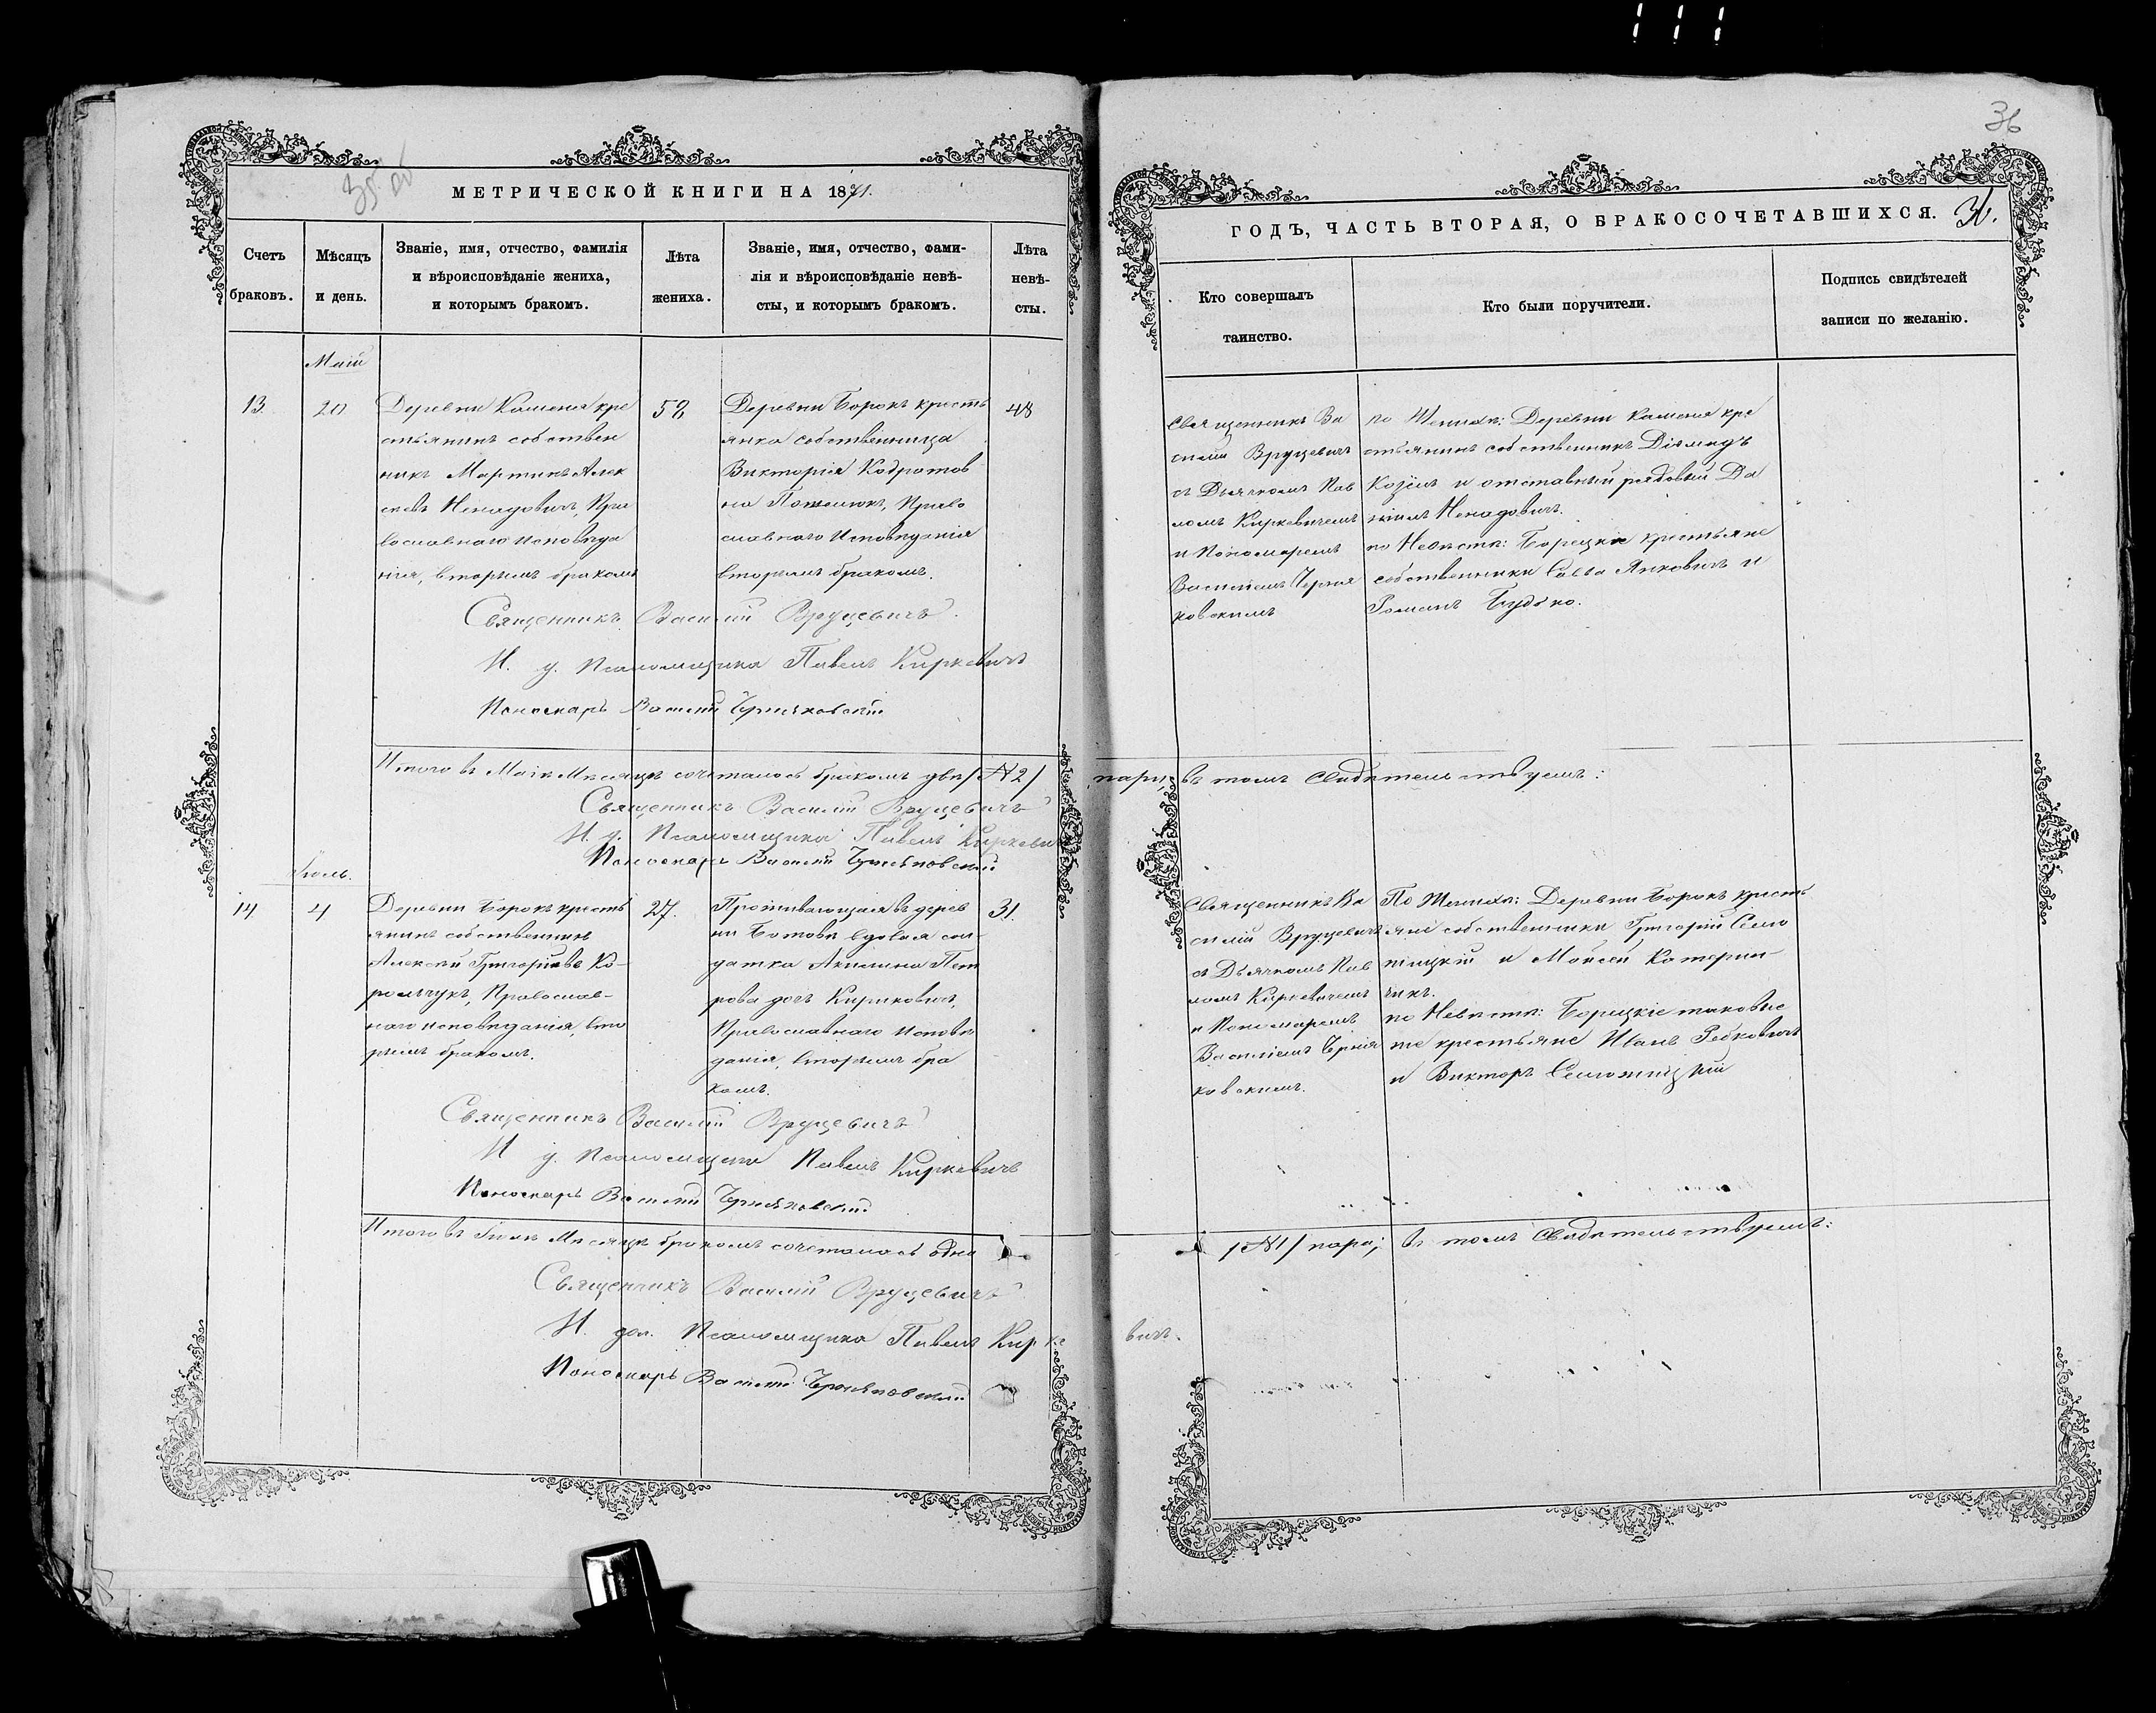 35
МЕТРИЧЕСКОЙ КНИГИ НА 1871.
Счетъ браковъ.
Мѣсяцъ и день.
Званіе, имя, отчество, фамилія
и вѣроисповѣданіе жениха,
и которымъ бракомъ.
Лѣта жениха.
Званіе, имя, отчество, фами-
лія и вѣроисповѣданіе невѣ-
сты, и которымъ бракомъ.
Лѣта
невѣ-
сты.
Маій
13.
20
Деревни Каменя кре
стьянинъ собствен
никъ Мартинъ Алек
сѣевъ Ненадовичъ, Пра
вославнаго исповѣда
нія, вторымъ бракомъ
52
Деревни Борокъ кресть
янка собственница
Викторія Кодратов
на, Право
славнаго исповѣданія
вторымъ бракомъ.
48
Священникъ Василій Вруцевичъ.
И. у. Псаломщика Павелъ Киркевичъ
Пономарь Василій Черняковскій
Итого въ Маіи Мѣсяцѣ сочеталось бракомъ двѣ /№2/
Священникъ Василій Вруцевичъ
И. у. Псаломщика Павелъ Киркеви
Пономарь Василій Черняковскій
Іюль.
14
4
Деревни Борокъ кресть
янинъ собственникъ
Алексѣй Григорьевъ Ко-
рольчукъ, Православ-
наго исповѣданія, вто
рымъ бракомъ.
27.
Проживающая въ дерев
ни вдовая сол-
датка Акилина Пет
рова дочь Кириковичъ,
Православнаго исповѣ
данія, вторымъ бра
комъ.
31.
Священникъ Василій Вруцевичъ
И у. Псаломщика Павелъ Киркевичъ
Пономарь Василій Черняковскій
Итого въ Іюлѣ Мѣсяцѣ бракомъ сочеталось одна
Священникъ Василій Вруцевичъ
И. дол. Псаломщика Павелъ Кирке
Пономарь Василій Черняковскій
36
ГОДЪ, ЧАСТЬ ВТОРАЯ, О БРАКОСОЧЕТАВШИХСЯ. 36.
Кто совершалъ
таинство.
Кто были поручители.
Подпись свидѣтелей
записи по желанію.
Священникъ Ва
силій Вруцевичъ
съ Дьячкомъ Пав
ломъ Киркевичемъ
и Пономаремъ
Василіемъ Черня
ковскимъ
по Женихѣ: Деревни Каменя кре
стьянинъ собственникъ Діямидъ
Козелъ и отставный рядовый Да
ніилъ Ненадовичъ.
по Невѣстѣ: Борецкіе крестьяне
собственники Савва Янковичъ и
Романъ Будько.
пары, въ томъ свидѣтельствуемъ:
Священникъ Ва
силій Вруцевичъ
съ Дьячкомъ Пав
ломъ Киркевичемъ
и Пономаремъ
Василіемъ Черня
ковскимъ.
По Женихѣ: Деревни Борокъ кресть
яне собственники Григорій Село
жицкій и Мойсей Катерин-
чикъ.
по Невѣстѣ: Борицкіе таковые
же крестьяне Иванъ Рабковичъ
и Викторъ Селюжицкій
/№1/ пара; въ томъ свидѣтельствуемъ:
вичъ.